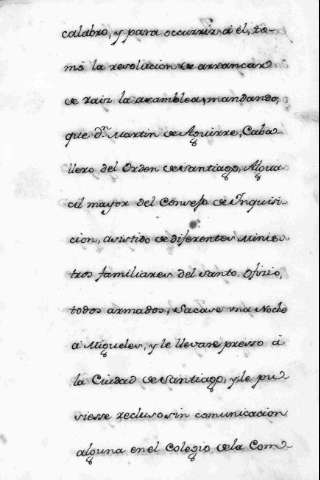 calabro, y para occurrir á él, to-
mó la revolucion de arrancar
de raiz la asamblea, mandando,
que Dn. Martin de Aguirre, Caba-
llero del Orden de Santiago, Algua-
cil mayor del Consejo de Inquisi-
cion, asistido de diferentes Minis-
tros familiares del Santo Oficio,
todos armados, sacase una Noche
a Migueles, y le llevase presso á
la Ciudad de Santiago, y le pu-
siesse recluso sin comunicacion
alguna en el Colegio de la Com-